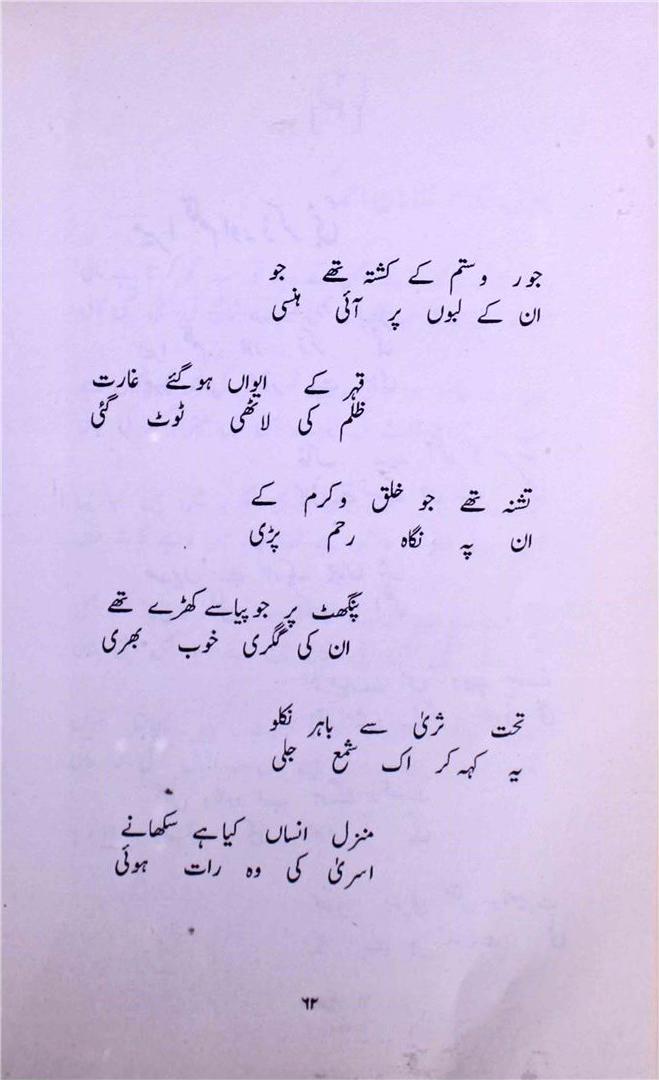 جور وستم کے کشتہ تھے جو
ان کے لبوں پر آئی ہنسی
قہر کے ایواں ہوگئے غارت
ظلم کی لاٹھی ٹوٹ گئی
تشنہ تھے جو خلق وکرم کے
ان پہ نگاہ رحم پڑی
پنگھٹ پر جو پیاسے کھڑے تھے
ان کی گگری خوب بھری
تحت ثریٰ سے باہر نکلو
یہ کہہ کر اک شمع جلی
منزل انساں کیا ہے سکھانے
اسریٰ کی وہ رات ہوئی
۶۲